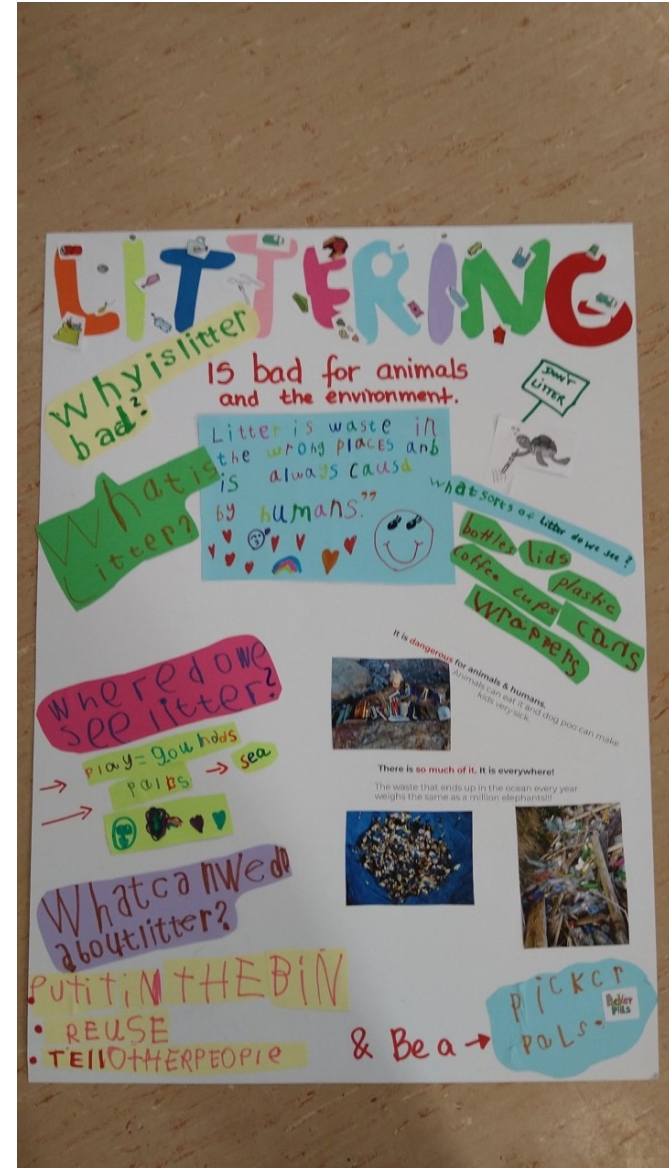 LITTERING
Why is litter
bad?
IS bad for animals
and the environment.
DON'T
LITTER
What is
Litter?
Litter is waste in
the wrong places anb
is always causd
by humans."
what sorts of litter do we see?
bottles lids
plastic
coffee cups
cans
wrappers
where do we
see litter?
play=gounods
parbs
sea
It is dangerous for animals & humans.
Animals can eat it and dog poo can make
kids very sick.
There is so much of it. It is everywhere!
The waste that ends up in the ocean every year
weighs the same as a million elephants!!!
What can we do
about litter?
PUT iT iN THE BiN
• REUSE
• TEll OTHER PEOPlE
& Be a →
PICKer
PaLs.